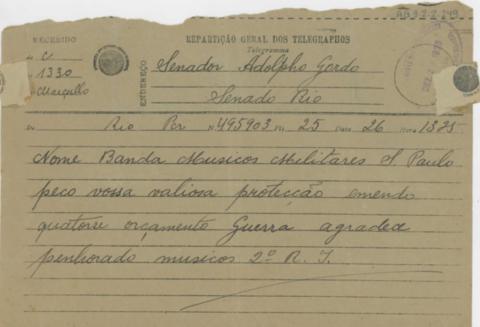 RECEBIDO
REPARTIÇÃO GERAL DOS TELEGRAPHOS
Telegramma
ENDEREÇO
Senador Adolpho Gordo
1330
Senado Rio
De Rio N 495903 Pls 25 Data 26 Hora
Nome Banda Musicos Militares S. Paulo
peco vossa valiosa protecção emenda
quatorse orçamento Guerra agradece
penhorado musicos 2º R. I.